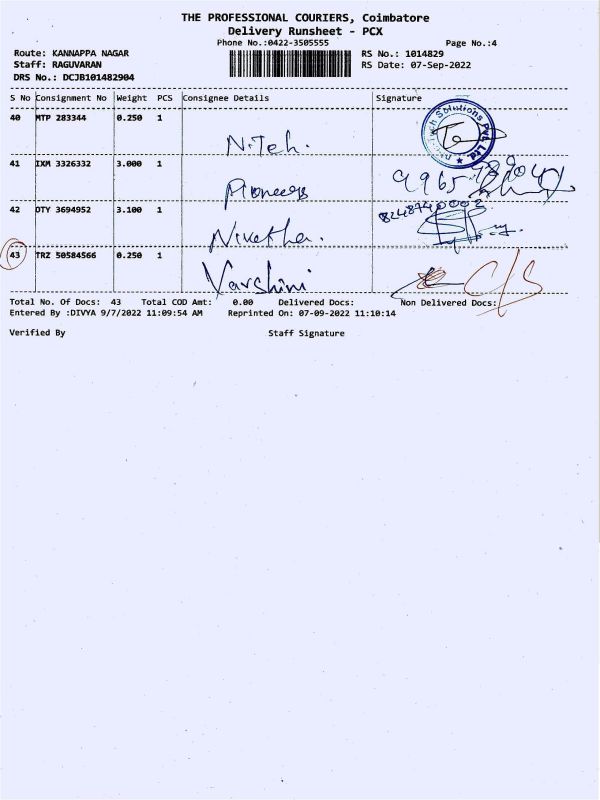 THE PROFESSIONAL COURIERS, Coimbatore
Delivery Runsheet - PCX
Phone No.:0422-3505555
Page No.:4
Route: KANNAPPA NAGAR
RS No.: 1014829
Staff: RAGUVARAN
RS Date: 07-Sep-2022
DRS No.: DCJB101482904
S No Consignment No Weight PCS Consignee Details Signature
40 MTP 283344 0.250 1
N.Teh.
Solutions Pvt. Ltd.
41 IXM 3326332 3.000 1
Pioneers
42 OTY 3694952 3.100 1
8248740002
Nivetha.
43 TRZ 50584566 0.250 1
Varshini
C/S
Total No. Of Docs: 43 Total COD Amt: 0.00 Delivered Docs: Non Delivered Docs:
Entered By :DIVYA 9/7/2022 11:09:54 AM Reprinted On: 07-09-2022 11:10:14
Verified By Staff Signature